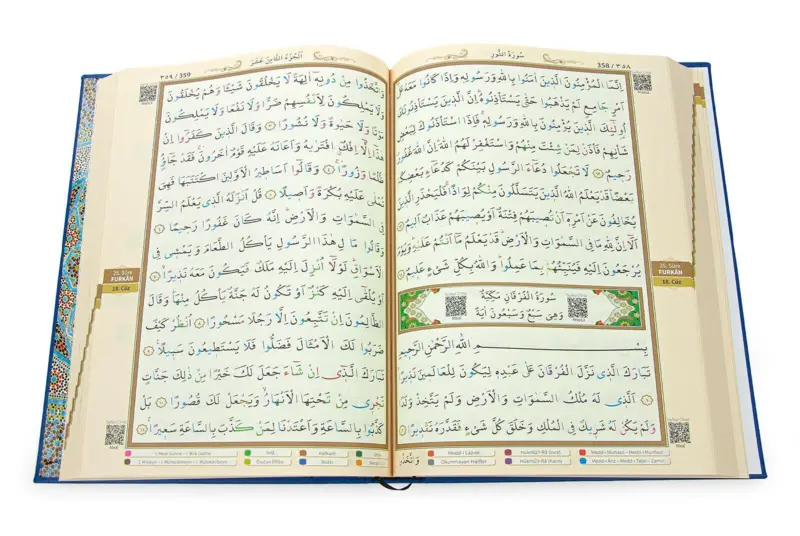 سُورَةُ النُّورِ
358 / ٣٥٨
اِنَّمَا الْمُؤْمِنُونَ الَّذِينَ اٰمَنُوا بِاللّٰهِ وَرَسُولِهِ وَاِذَا كَانُوا مَعَهُ عَلٰٓى
اَمْرٍ جَامِعٍ لَمْ يَذْهَبُوا حَتّٰى يَسْتَأْذِنُوهُ اِنَّ الَّذِينَ يَسْتَأْذِنُونَكَ
اُو۬لٰٓئِكَ الَّذِينَ يُؤْمِنُونَ بِاللّٰهِ وَرَسُولِهِ فَاِذَا اسْتَأْذَنُوكَ لِبَعْضِ
شَأْنِهِمْ فَأْذَنْ لِمَنْ شِئْتَ مِنْهُمْ وَاسْتَغْفِرْ لَهُمُ اللّٰهَ اِنَّ اللّٰهَ غَفُورٌ
رَحِيمٌ لَا تَجْعَلُوا دُعَٓاءَ الرَّسُولِ بَيْنَكُمْ كَدُعَٓاءِ بَعْضِكُمْ
بَعْضًا قَدْ يَعْلَمُ اللّٰهُ الَّذِينَ يَتَسَلَّلُونَ مِنْكُمْ لِوَاذًا فَلْيَحْذَرِ الَّذِينَ
يُخَالِفُونَ عَنْ اَمْرِهِٓ اَنْ تُصِيبَهُمْ فِتْنَةٌ اَوْ يُصِيبَهُمْ عَذَابٌ اَلِيمٌ
اَلَٓا اِنَّ لِلّٰهِ مَا فِي السَّمٰوَاتِ وَالْاَرْضِ قَدْ يَعْلَمُ مَٓا اَنْتُمْ عَلَيْهِ وَيَوْمَ
يُرْجَعُونَ اِلَيْهِ فَيُنَبِّئُهُمْ بِمَا عَمِلُوا وَاللّٰهُ بِكُلِّ شَيْءٍ عَلِيمٌ
سُورَةُ الْفُرْقَانِ مَكِّيَّةٌ
وَهِيَ سَبْعٌ وَسَبْعُونَ اٰيَةً
بِسْمِ اللّٰهِ الرَّحْمٰنِ الرَّحِيمِ
تَبَارَكَ الَّذِي نَزَّلَ الْفُرْقَانَ عَلٰى عَبْدِهِ لِيَكُونَ لِلْعَالَمِينَ نَذِيرًا
اَلَّذِي لَهُ مُلْكُ السَّمٰوَاتِ وَالْاَرْضِ وَلَمْ يَتَّخِذْ وَلَدًا
وَلَمْ يَكُنْ لَهُ شَرِيكٌ فِي الْمُلْكِ وَخَلَقَ كُلَّ شَيْءٍ فَقَدَّرَهُ تَقْدِيرًا
25. Sûre
FURKÂN
18. Cüz
اَلْجُزْءُ الثَّامِنَ عَشَرَ
٣٥٩ / 359
وَاتَّخَذُوا مِنْ دُونِهِٓ اٰلِهَةً لَا يَخْلُقُونَ شَيْئًا وَهُمْ يُخْلَقُونَ
وَلَا يَمْلِكُونَ لِاَنْفُسِهِمْ ضَرًّا وَلَا نَفْعًا وَلَا يَمْلِكُونَ
مَوْتًا وَلَا حَيٰوةً وَلَا نُشُورًا وَقَالَ الَّذِينَ كَفَرُٓوا اِنْ
هٰذَٓا اِلَّٓا اِفْكٌ افْتَرٰيهُ وَاَعَانَهُ عَلَيْهِ قَوْمٌ اٰخَرُونَ فَقَدْ جَٓاؤُ۫
ظُلْمًا وَزُورًا وَقَالُٓوا اَسَاطِيرُ الْاَوَّلِينَ اكْتَتَبَهَا فَهِيَ
تُمْلٰى عَلَيْهِ بُكْرَةً وَاَصِيلًا قُلْ اَنْزَلَهُ الَّذِي يَعْلَمُ السِّرَّ
فِي السَّمٰوَاتِ وَالْاَرْضِ اِنَّهُ كَانَ غَفُورًا رَحِيمًا
وَقَالُوا مَالِ هٰذَا الرَّسُولِ يَأْكُلُ الطَّعَامَ وَيَمْشِي فِي
الْاَسْوَاقِ لَوْلَٓا اُنْزِلَ اِلَيْهِ مَلَكٌ فَيَكُونَ مَعَهُ نَذِيرًا
اَوْ يُلْقٰٓى اِلَيْهِ كَنْزٌ اَوْ تَكُونُ لَهُ جَنَّةٌ يَأْكُلُ مِنْهَا وَقَالَ
الظَّالِمُونَ اِنْ تَتَّبِعُونَ اِلَّا رَجُلًا مَسْحُورًا اُنْظُرْ كَيْفَ
ضَرَبُوا لَكَ الْاَمْثَالَ فَضَلُّوا فَلَا يَسْتَطِيعُونَ سَبِيلًا
تَبَارَكَ الَّذِٓي اِنْ شَٓاءَ جَعَلَ لَكَ خَيْرًا مِنْ ذٰلِكَ جَنَّاتٍ
تَجْرِي مِنْ تَحْتِهَا الْاَنْهَارُ وَيَجْعَلْ لَكَ قُصُورًا بَلْ
كَذَّبُوا بِالسَّاعَةِ وَاَعْتَدْنَا لِمَنْ كَذَّبَ بِالسَّاعَةِ سَعِيرًا
25. Sûre
FURKÂN
18. Cüz